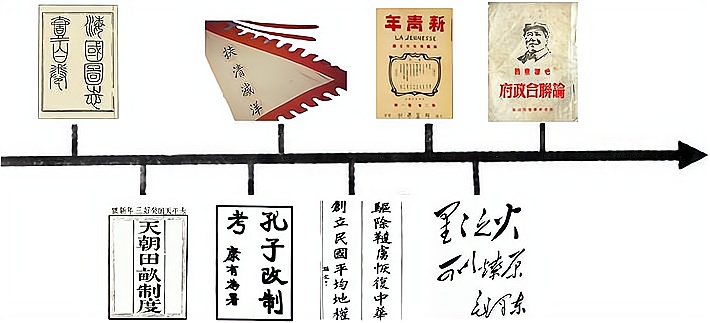 海國圖志
壹百卷
扶清滅洋
新青年
LA JEUNESSE
毛澤東著
論聯合政府
天朝田畝制度
孔子改制
考
康有為著
驅除韃虜恢復中華
創立民國平均地權
孫文
星星之火
可以燎原
毛泽东